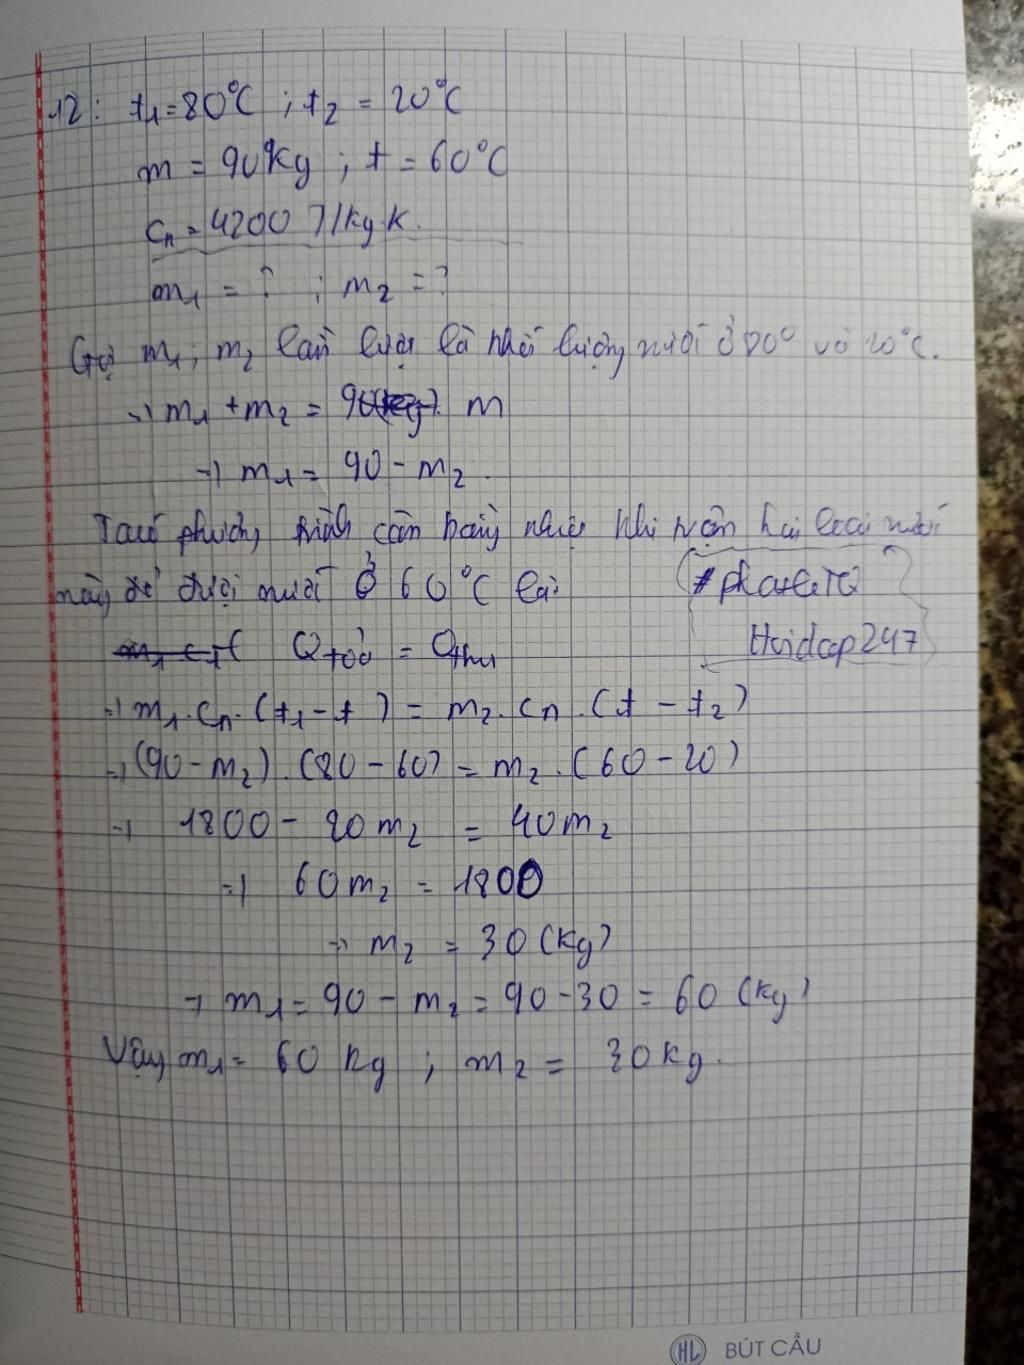 12: t₁=80°C ; t₂ = 20°C
m = 90kg ; t = 60°C
cₙ = 4200 J/kg.K.
m₁ = ? ; m₂ = ?
Gọi m₁; m₂ lần lượt là khối lượng nước ở 80° và 20°C.
⇒ m₁ + m₂ = m
⇒ m₁ = 90 - m₂.
Ta có phương trình cân bằng nhiệt khi trộn hai loại nước
này để được nước ở 60°C là:
#phaeTQ
Q tỏa = Q thu
Hoidap247
⇒ m₁.cₙ.(t₁-t) = m₂.cₙ.(t - t₂)
⇒ (90-m₂).(80-60) = m₂.(60-20)
⇒ 1800 - 20m₂ = 40m₂
⇒ 60m₂ = 1800
⇒ m₂ = 30 (kg)
⇒ m₁ = 90 - m₂ = 90 - 30 = 60 (kg)
Vậy m₁ = 60 kg ; m₂ = 30kg.
HL BÚT CẦU